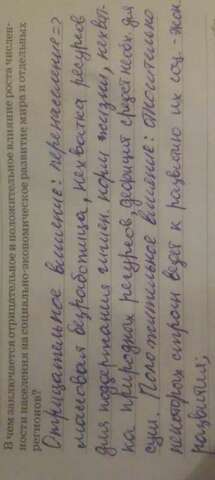 В чем заключается отрицательное и положительное влияние роста числен-
ности населения на социально-экономическое развитие мира и отдельных
регионов?
Отрицательное влияние: перенаселение =>
массовая безработица, нехватка ресурсов
для поддержания гигиен. норм жизни, нехват-
ка природных ресурсов, дефицит средств необх. для
сущ. Положительное влияние: относительно
некоторых стран ведет к развитию их соц.-экон.
развития;